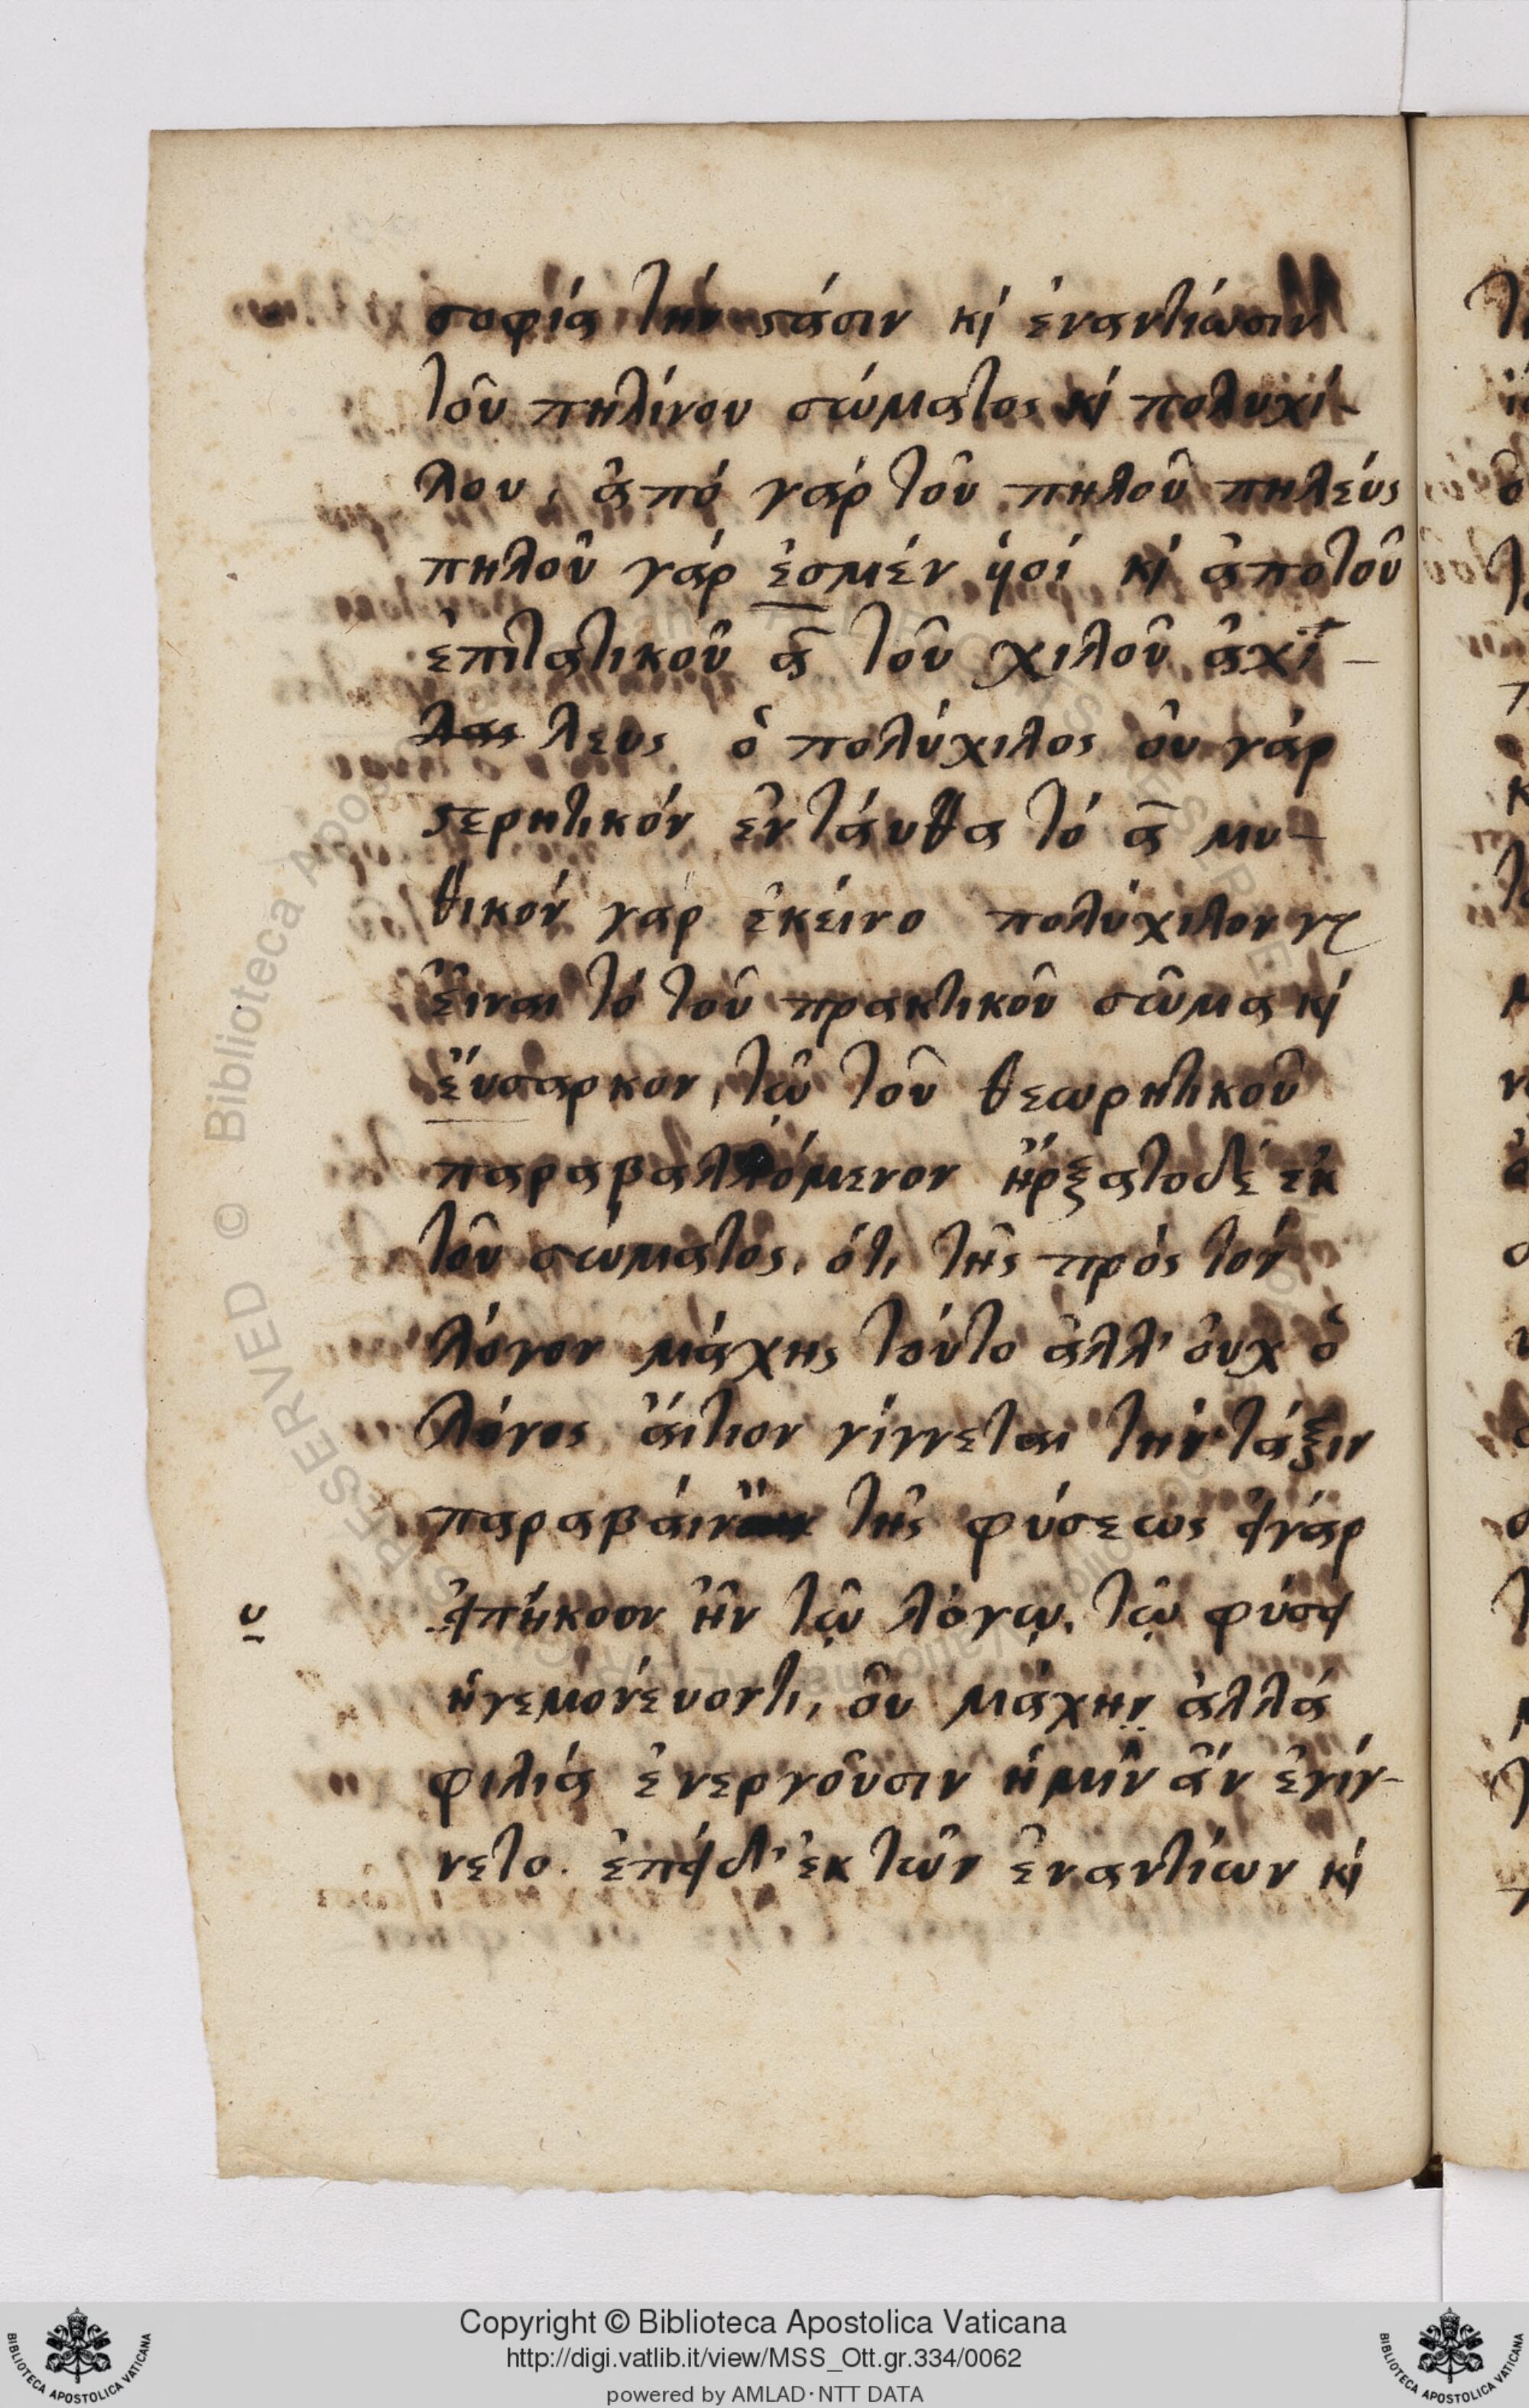 σοφία τήν στάσιν κὶ ἐναντίωσιν
τοῦ πηλίνου σώματος κὶ πολυχί-
λου, ἀπό γάρ τοῦ πηλοῦ πηλεύς
πηλοῦ γάρ ἐσμέν υἱοί κὶ ἀπό τοῦ
ἐπιτατικοῦ ᾱ τοῦ χιλοῦ ἀχι-
λας λευς ὁ πολύχιλος οὐ γάρ
στερητικόν ἐνταύθα τό ᾱ μυ-
θικόν γάρ ἐκείνο πολύχιλον
εἶναι τό τοῦ πρακτικοῦ σῶμα κὶ
ἔυσαρκον, τῶ τοῦ θεωρητικοῦ
παραβαλλόμενον ἤρξατο δέ ἐκ
τοῦ σώματος, ὅτι τῆς πρός τόν
λόγον μάχης τοῦτο ἀλλ' οὐχ ὁ
λόγος ἄιτιον γίγνεται τήν τάξιν
παραβάιν τῆς φύσεως εἰ γάρ
υ
ὑπήκοον ἦν τῷ λόγῳ, τῷ φύσει
ἡγεμονέυοντι, οὐ μάχην ἀλλά
φιλιά ἐνεργοῦσιν ἡμῖν ἄν ἐγίγ-
νετο. ἐπεί δ' ἐκ τῶν ἐναντίων κὶ
Copyright © Biblioteca Apostolica Vaticana
http://digi.vatlib.it/view/MSS_Ott.gr.334/0062
powered by AMLAD·NTT DATA